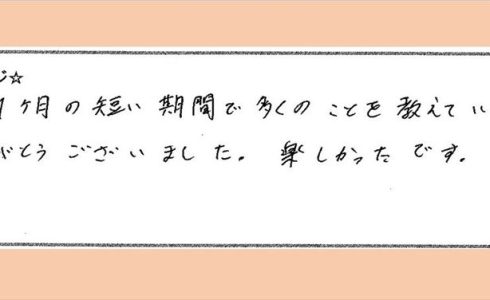 ジ☆
1ヶ月の短い期間で多くのことを教えてい
がとうございました。楽しかったです。